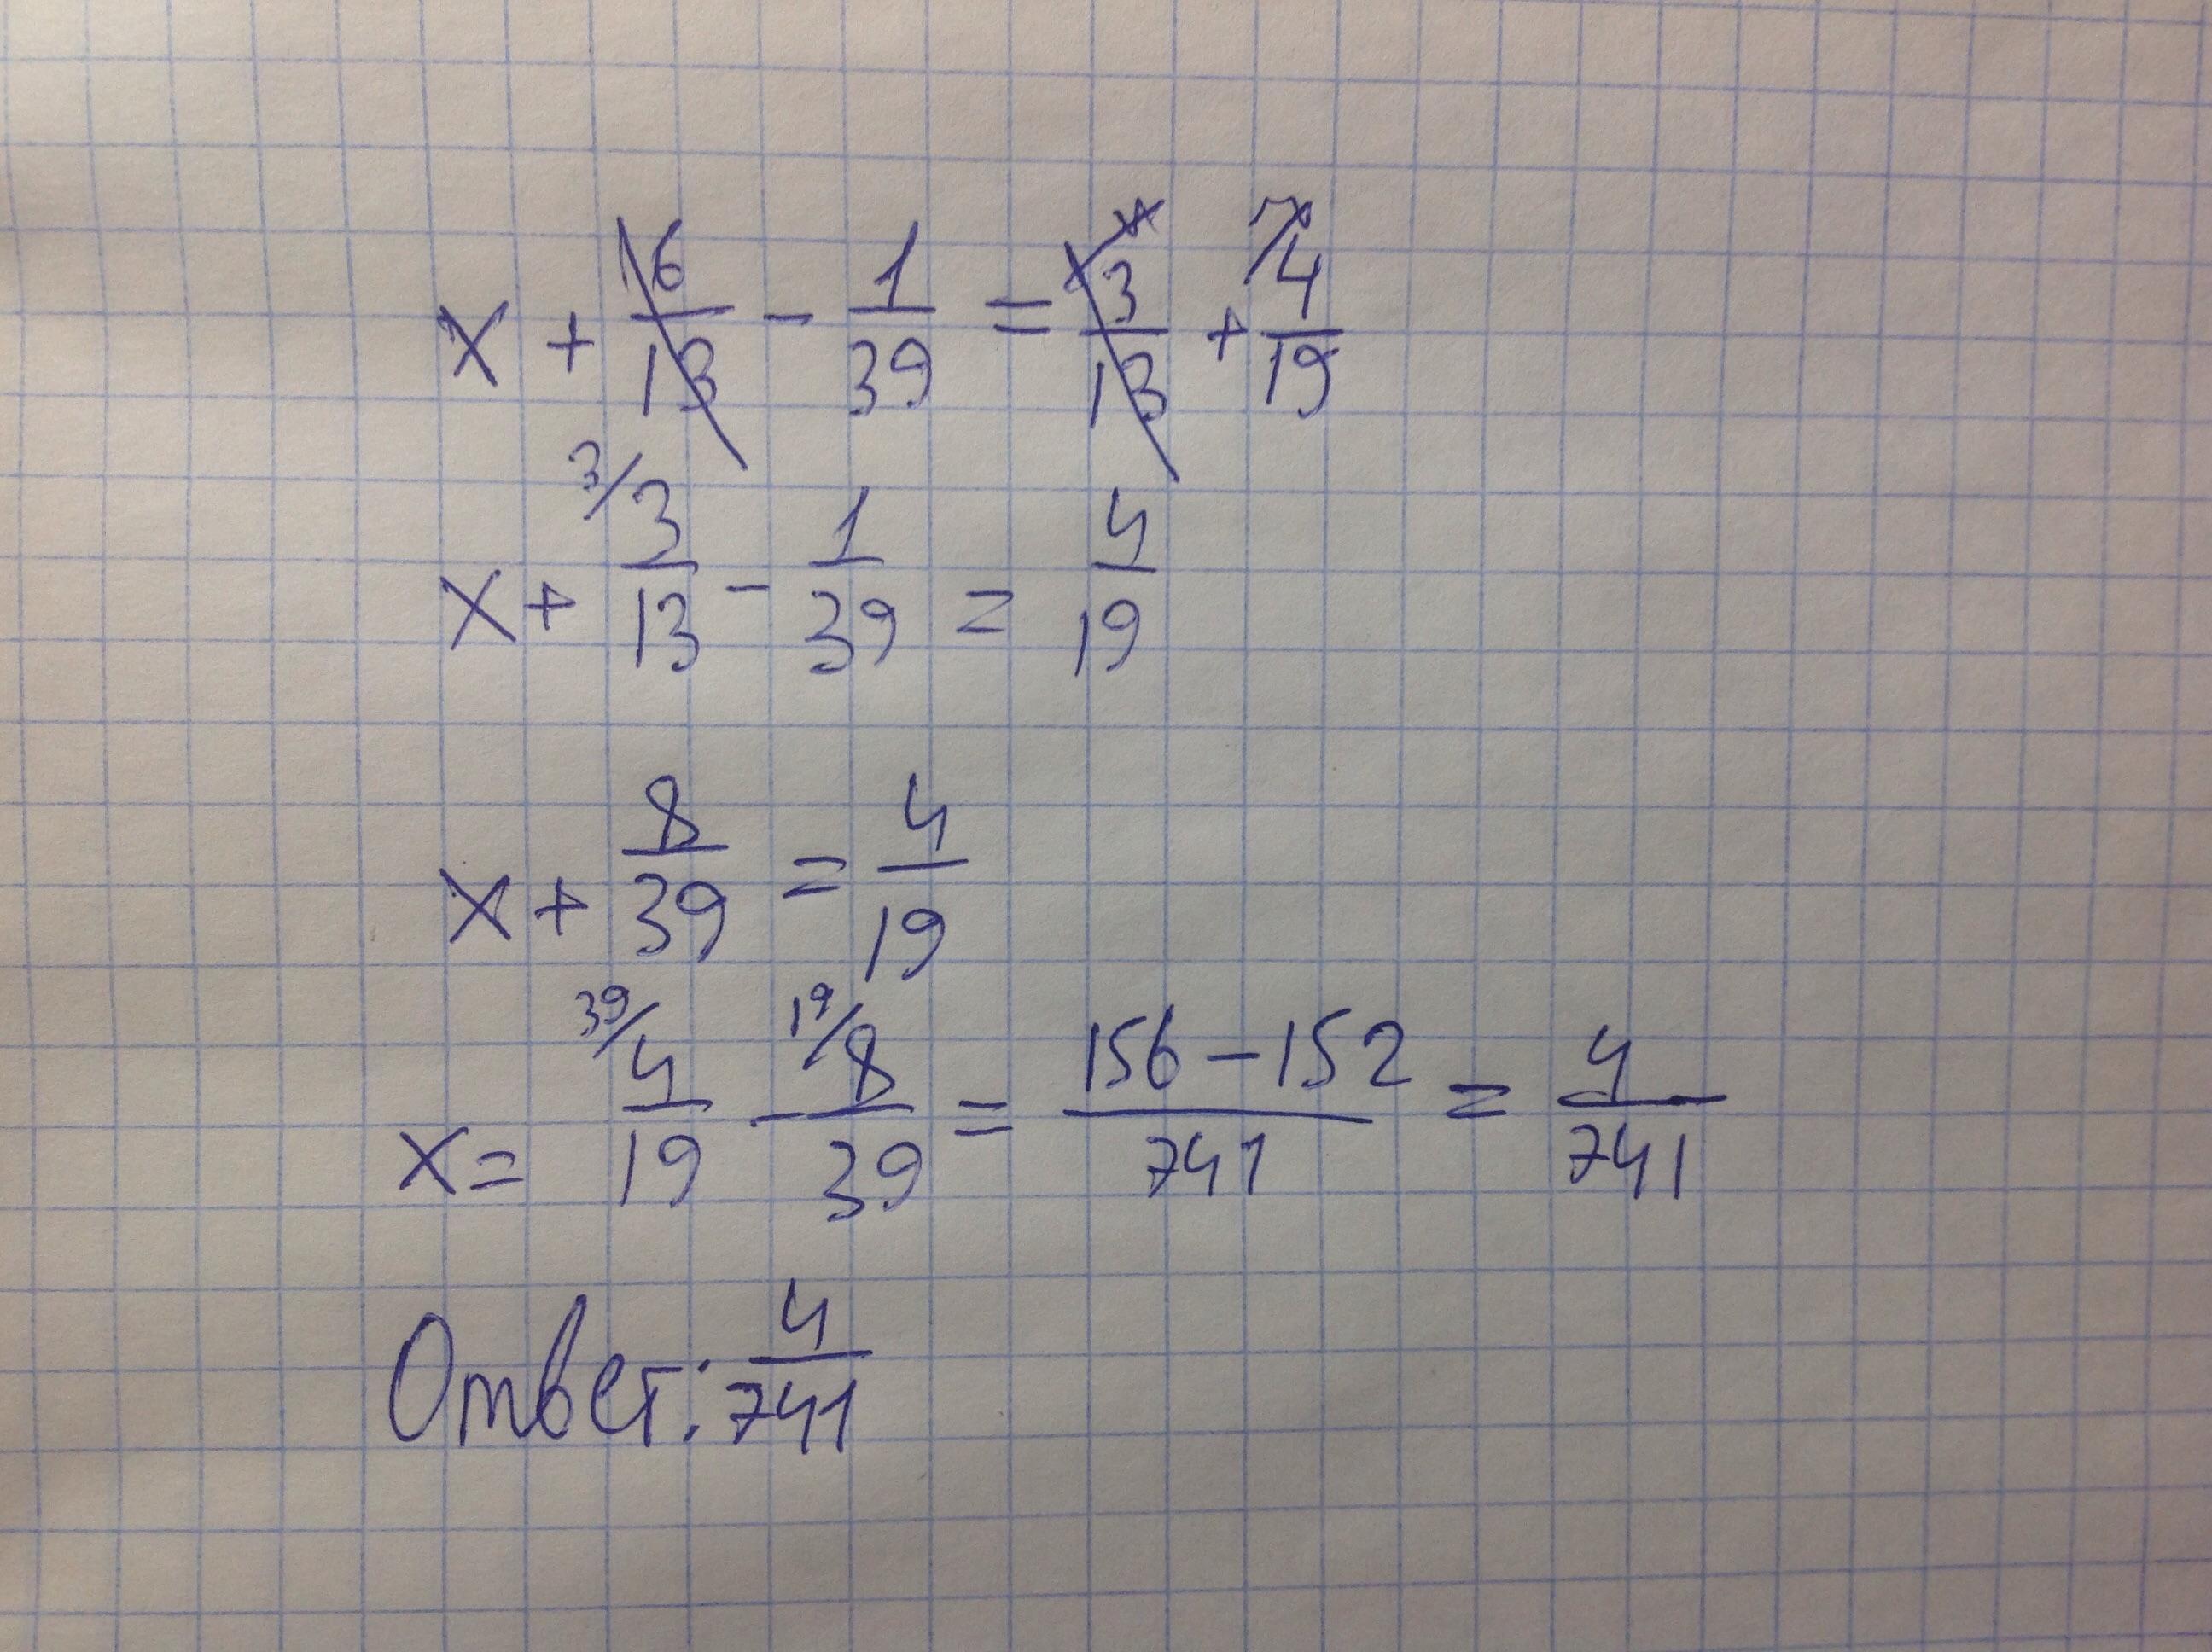 x + 6/13 - 1/39 = 3/13 + 4/19
x + 3/ 3/13 - 1/39 = 4/19
x + 8/39 = 4/19
x = 39/ 4/19 - 19/ 8/39 = (156 - 152)/741 = 4/741
Ответ: 4/741